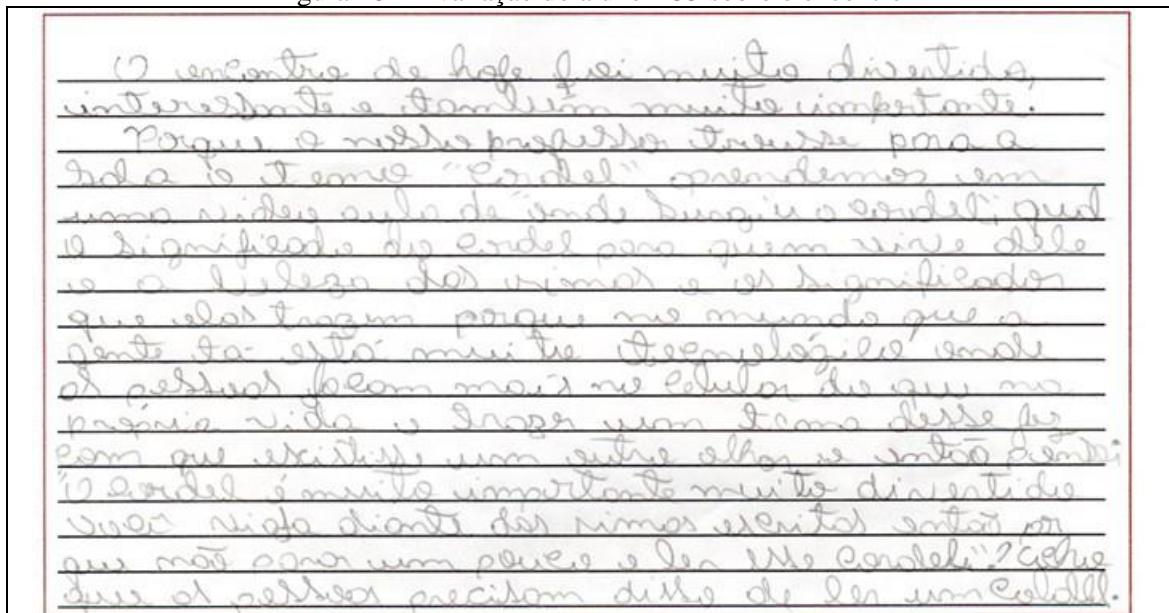 O encontro de hoje foi muito divertido,
interessante e também muito importante.
Porque o nosso professor trousse para a
sala o tema "Cordel" aprendemos em
uma video aula de "onde surgiu o cordel", qual
o significado do cordel para quem vive dele
e a beleza das rimas e os significados
que elas trazem porque no mundo que a
gente ta está muito tecnológico onde
as pessoas focam mais no celular do que na
própria vida e trazer um tema desse fez
com que existisse um outro olhar e então pensei
"O cordel é muito importante muito divertido
você viaja diante das rimas escritas então por
que não parar um pouco e ler esse cordel"? acho
que as pessoas precisam disso de ler um coldel.